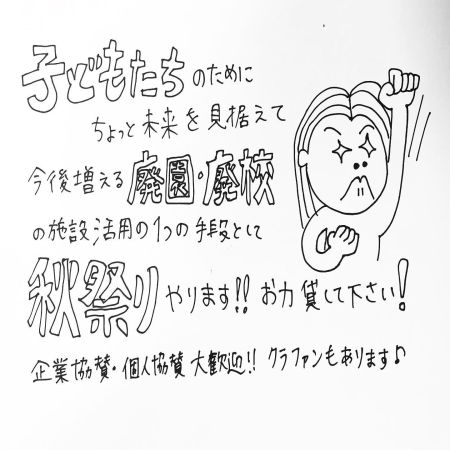 子どもたちのために
ちょっと未来を見据えて
今後増える廃園・廃校
の施設活用の1つの手段として
秋祭りやります!!お力貸して下さい!
企業協賛・個人協賛大歓迎!!クラファンもあります♪